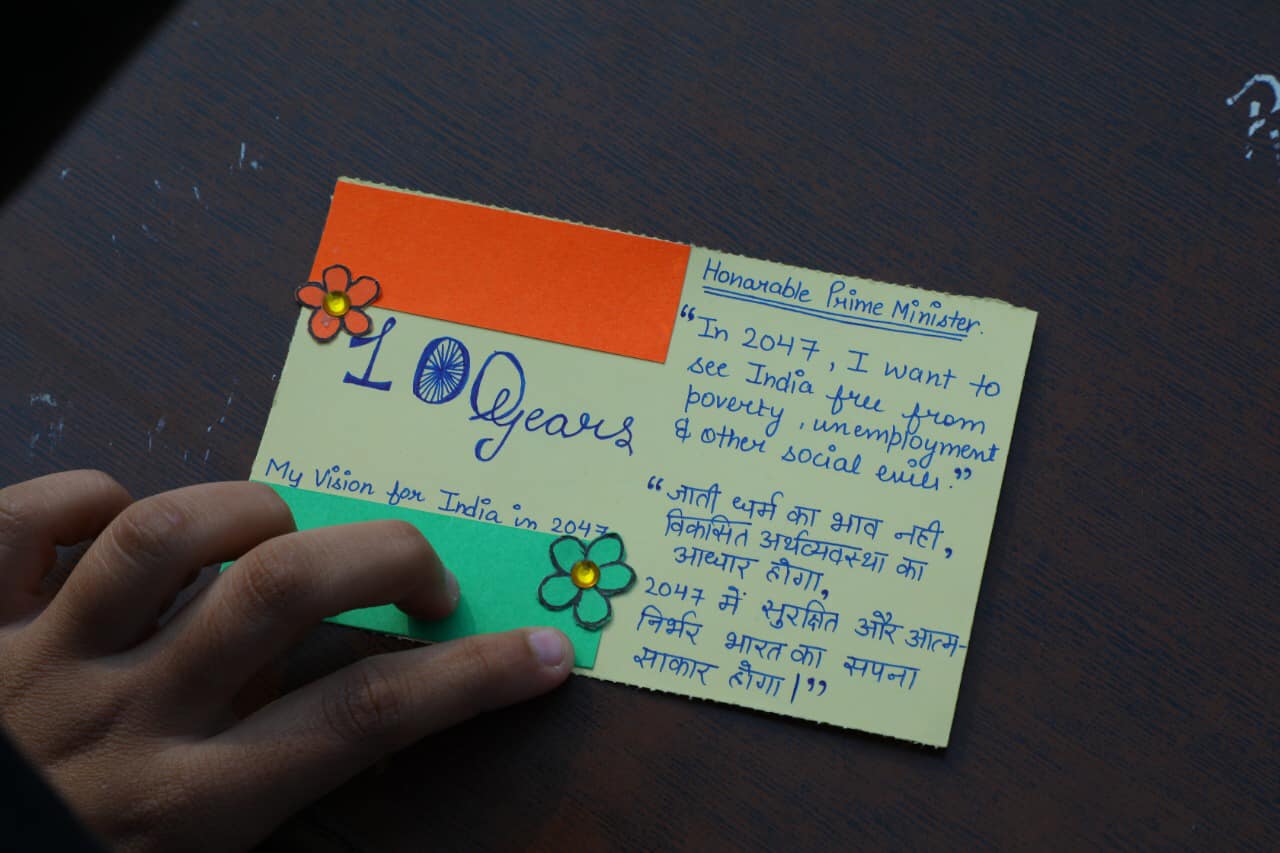 100 years
My Vision for India in 2047
Honarable Prime Minister.
“In 2047, I want to
see India free from
poverty, unemployment
& other social evils.”
“जाती धर्म का भाव नही,
विकसित अर्थव्यवस्था का
आधार होगा,
2047 में सुरक्षित और आत्म-
निर्भर भारत का सपना
साकार होगा।”